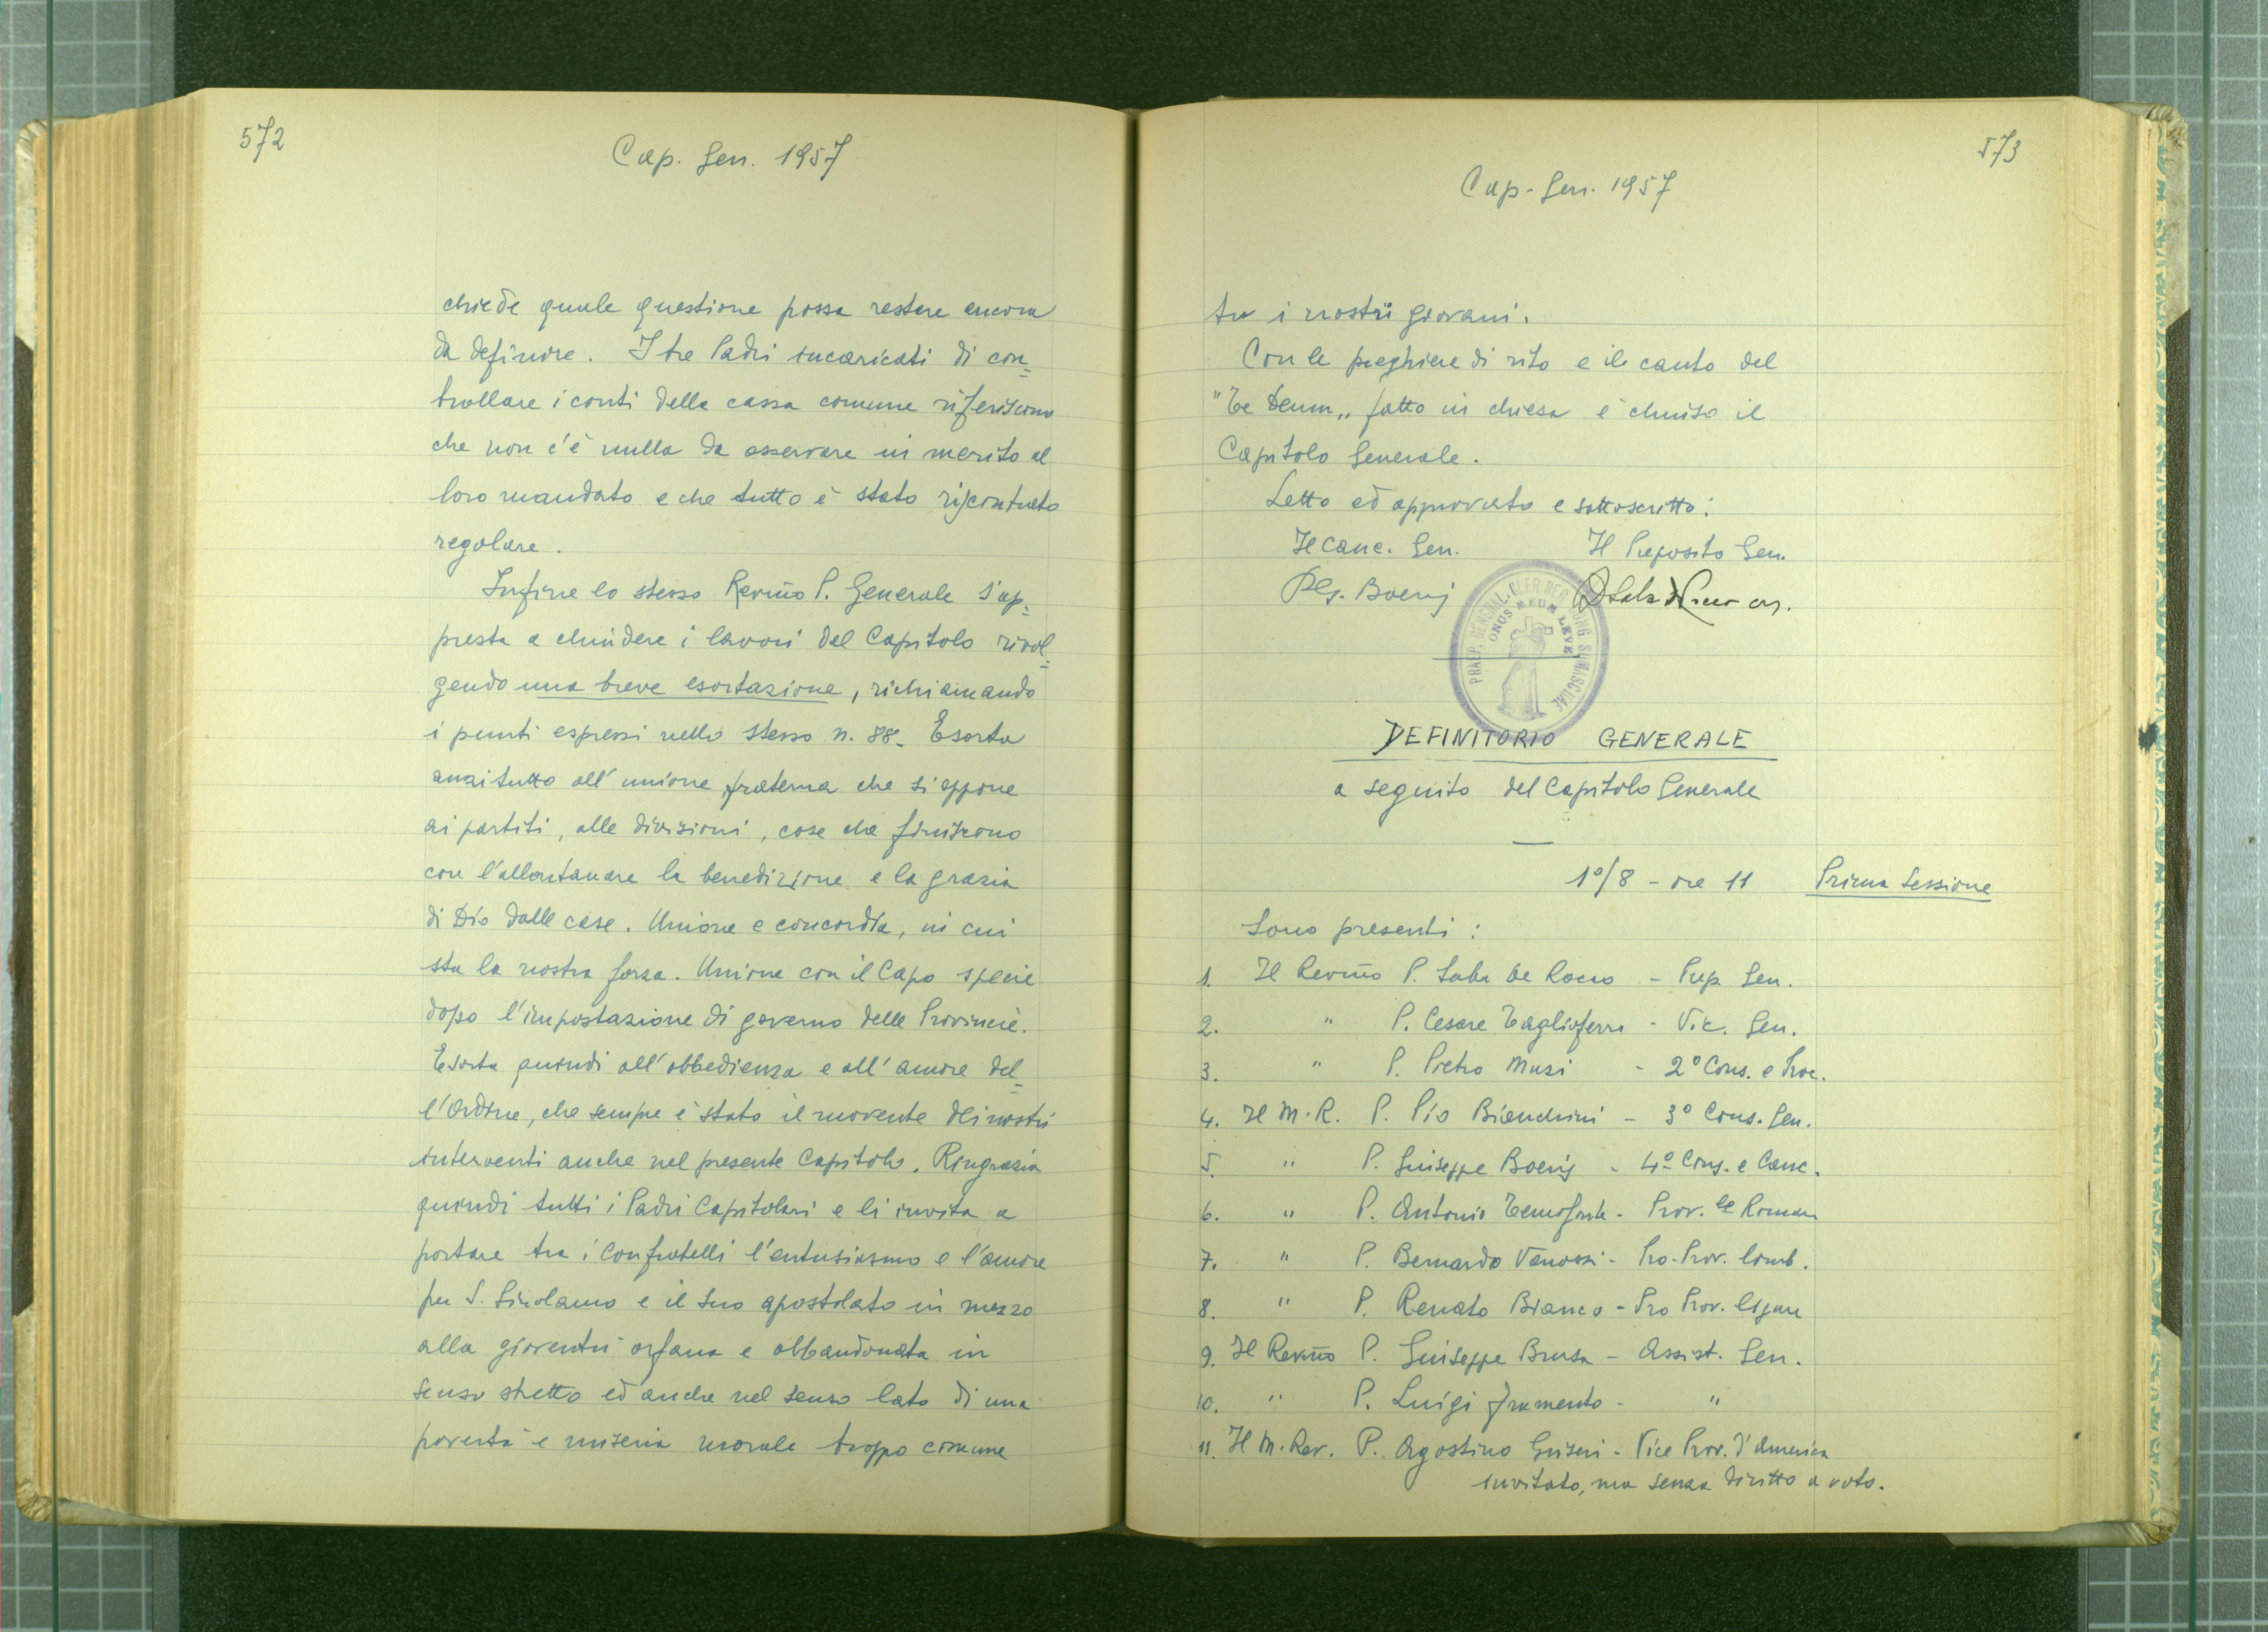 572
Cap. Gen. 1957
chiede quale questione possa restare ancora
da definire. I tre Padri incaricati di con=
trollare i conti della cassa comune riferiscono
che non c'è nulla da osservare in merito al
loro mandato e che tutto è stato riscontrato
regolare.
Infine lo stesso Rev.mo P. Generale s'ap=
presta a chiudere i lavori del Capitolo rivol=
gendo una breve esortazione, richiamando
i punti espressi nello stesso n. 88. Esorta
anzitutto all'unione fraterna che si oppone
ai partiti, alle divisioni, cose che finiscono
con l'allontanare la benedizione e la grazia
di Dio dalle case. Unione e concordia, in cui
sta la nostra forza. Unione con il Capo specie
dopo l'impostazione di governo delle Provincie.
Esorta quindi all'obbedienza e all'amore del=
l'Ordine, che sempre è stato il movente dei nostri
interventi anche nel presente Capitolo. Ringrazia
quindi tutti i Padri Capitolari e li invita a
portare tra i Confratelli l'entusiasmo e l'amore
per S. Girolamo e il suo apostolato in mezzo
alla gioventù orfana e abbandonata in
senso stretto ed anche nel senso lato di una
povertà e miseria morale troppo comune
573
Cap. Gen. 1957
tra i nostri giovani.
Con le preghiere di rito e il canto del
"Te Deum„ fatto in chiesa è chiuso il
Capitolo Generale.
Letto ed approvato e sottoscritto:
Il Canc. Gen. Il Preposito Gen.
P. G. Boeris P Saba De Rocco crs.
PRAEP. GENERAL. CLER. REG. CONG. SOMASCHAE
ONUS MEUM LEVE
DEFINITORIO GENERALE
a seguito del Capitolo Generale
1º/8 - ore 11 Prima Sessione
Sono presenti:
1. Il Rev.mo P. Saba De Rocco - Prep. Gen.
2. " P. Cesare Tagliaferro - Vic. Gen.
3. " P. Pietro Muzi - 2º Cons. e Proc.
4. Il M. R. P. Pio Bianchini - 3º Cons. Gen.
5. " P. Giuseppe Boeris - 4º Cons. e Canc.
6. " P. Antonio Temofonte - Prov.le Romano
7. " P. Bernardo Vanossi - Pro-Prov. Lomb.
8. " P. Renato Bianco - Pro Prov. Ligure
9. Il Rev.mo P. Giuseppe Brusa - Assist. Gen.
10. " P. Luigi Frumento - "
11. Il M. Rev. P. Agostino Griseri - Vice Prov. d'America
invitato, ma senza diritto a voto.